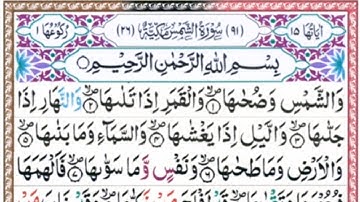 اٰيَاتُهَا ١٥ (٩١) سُوْرَةُ الشَّمْسِ مَكِّيَّةٌ (٢٦) رُكُوْعُهَا ١
بِسْمِ اللّٰهِ الرَّحْمٰنِ الرَّحِيْمِ
وَالشَّمْسِ وَضُحٰىهَا ۙ۝١ وَالْقَمَرِ اِذَا تَلٰىهَا ۙ۝٢ وَالنَّهَارِ اِذَا
جَلّٰىهَا ۙ۝٣ وَالَّيْلِ اِذَا يَغْشٰىهَا ۙ۝٤ وَالسَّمَآءِ وَمَا بَنٰىهَا ۙ۝٥
وَالْاَرْضِ وَمَا طَحٰىهَا ۙ۝٦ وَنَفْسٍ وَّمَا سَوّٰىهَا ۙ۝٧ فَاَلْهَمَهَا